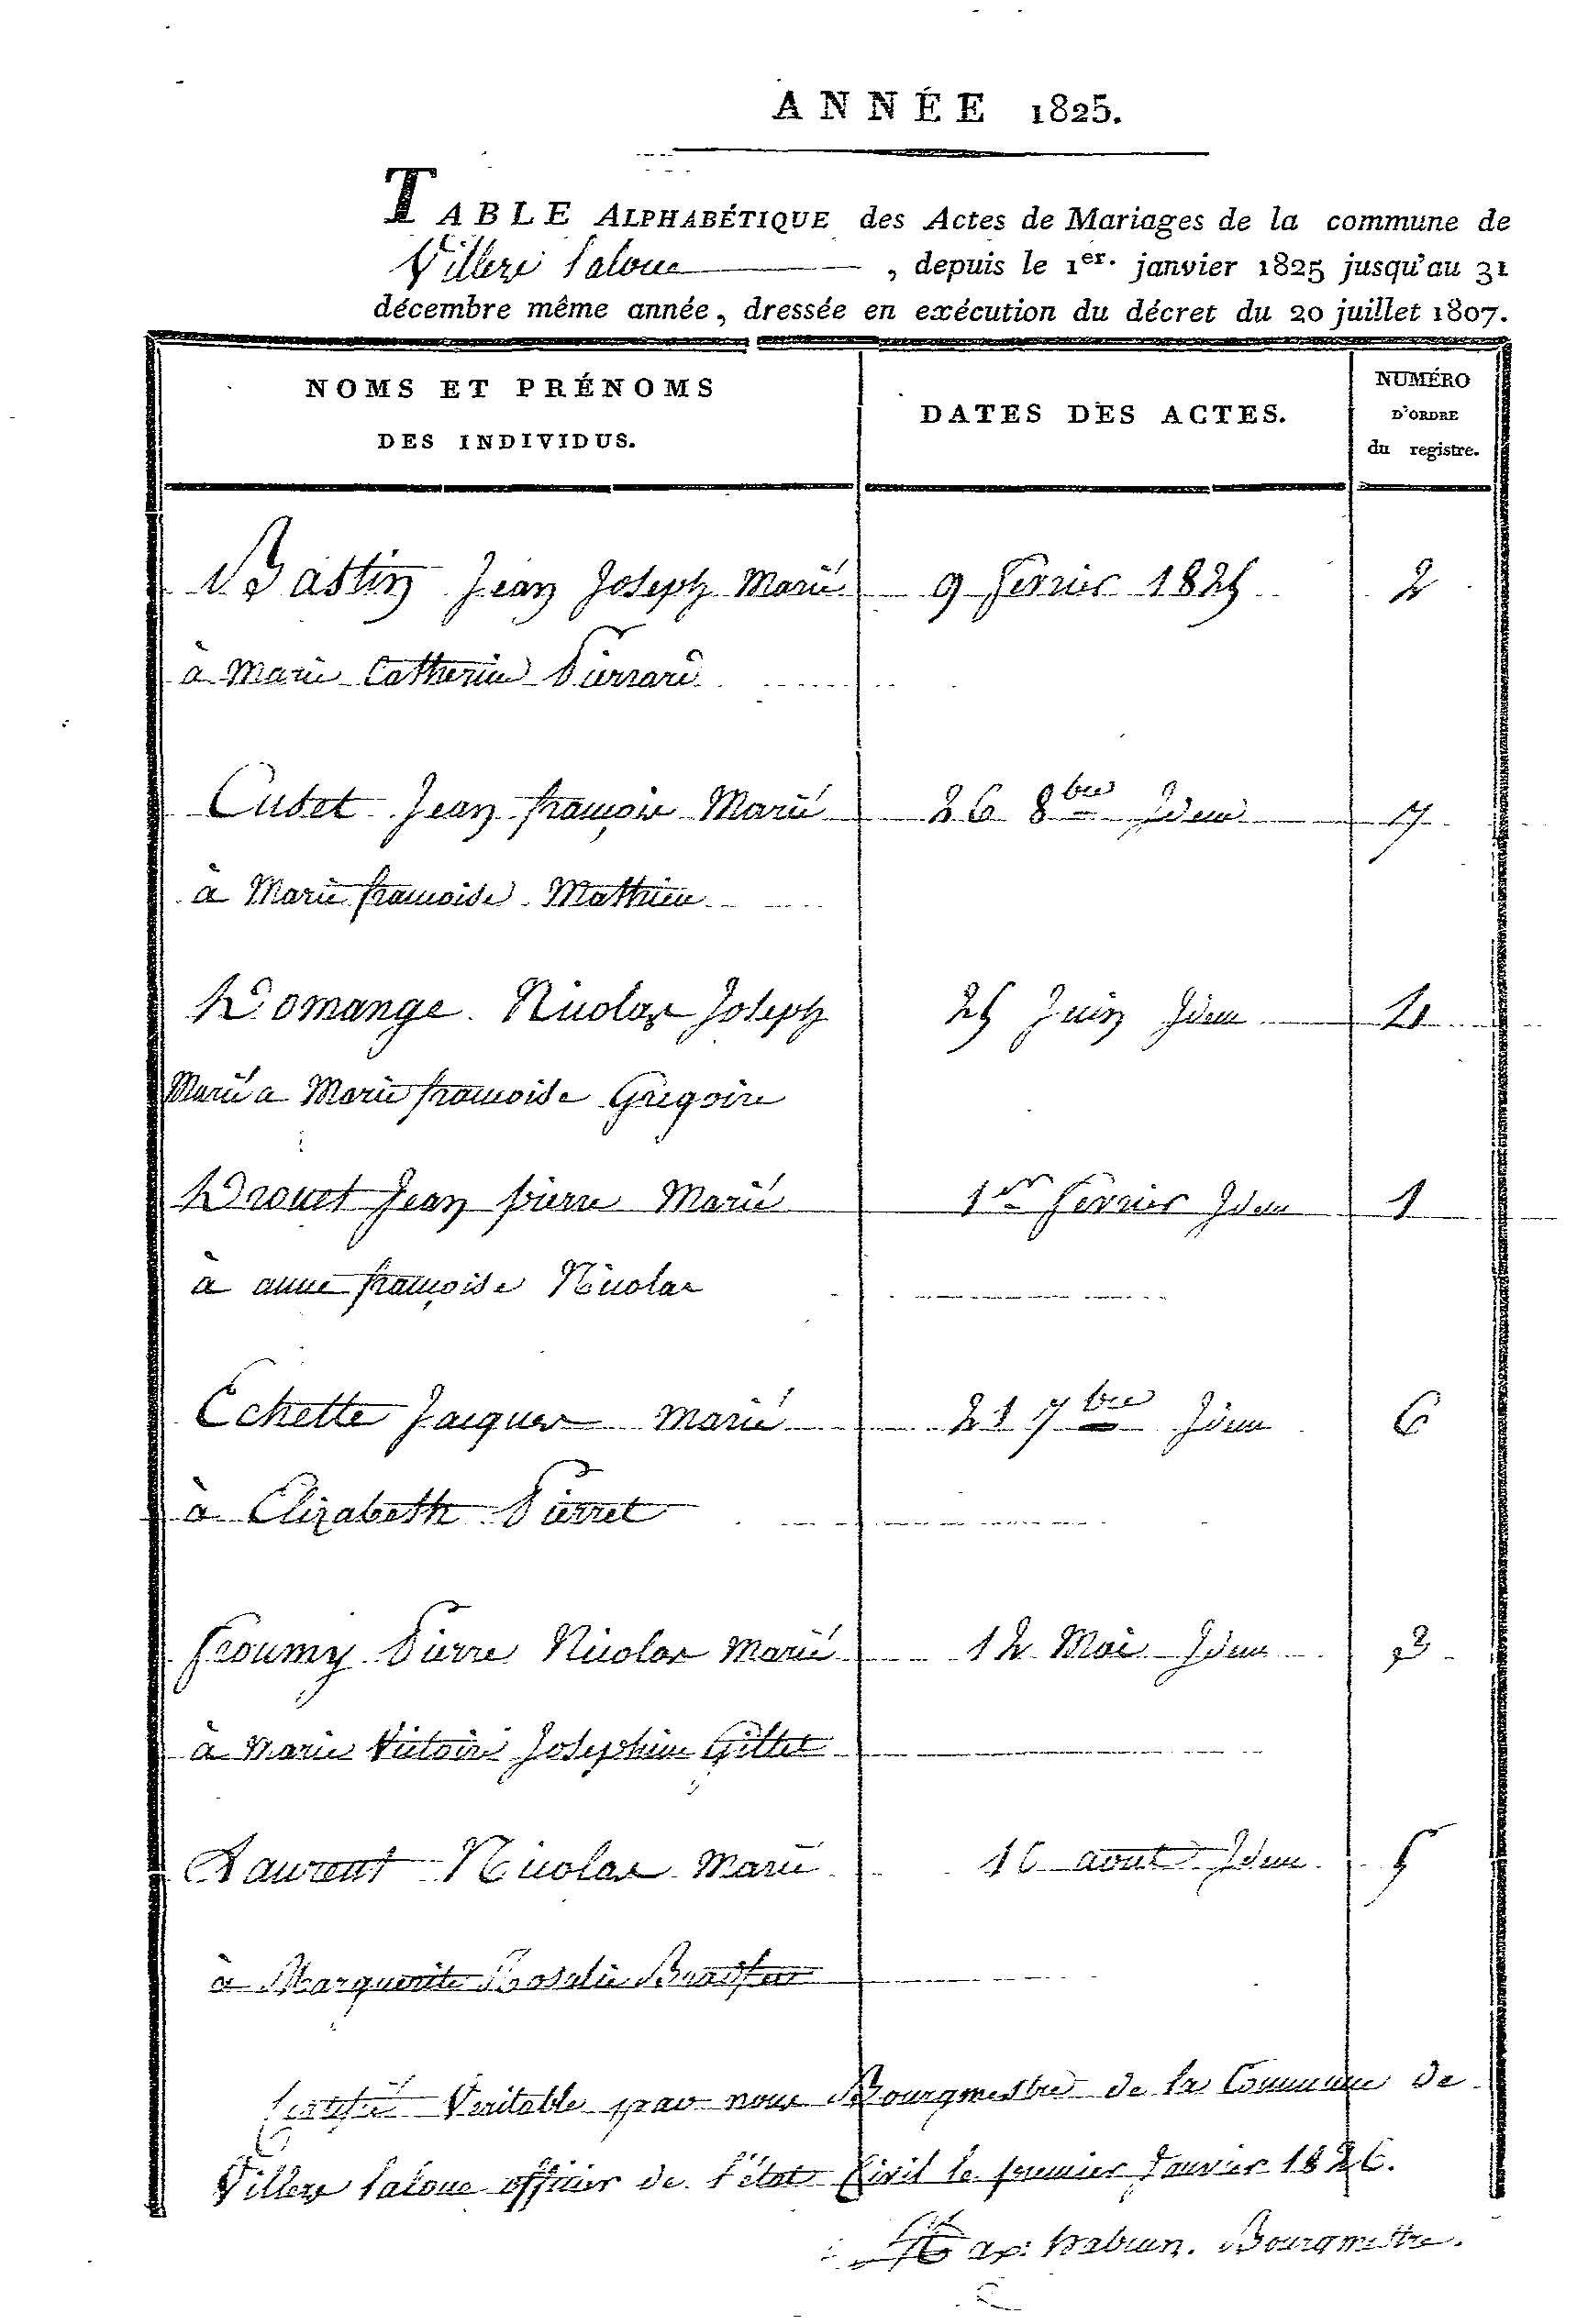 ANNÉE 1825.
TABLE ALPHABÉTIQUE des Actes de Mariages de la commune de
Villers laloue, depuis le 1er. janvier 1825 jusqu'au 31
décembre même année, dressée en exécution du décret du 20 juillet 1807.
NOMS ET PRÉNOMS
DES INDIVIDUS.
DATES DES ACTES.
NUMÉRO
D'ORDRE
du registre.
Bastin Jean Joseph Marié 9 fevrier 1825 2
à Marie Catherine Pierrard
Cudet Jean françois Marié 26 8bre Idem 7
à Marie francoise Mathieu
Domange Nicolas Joseph 25 Juin Idem 4
Marié a Marie francoise Gregoire
Drouet Jean pierre Marié 1er fevrier Idem 1
à anne françoise Nicolas
Echette Jacques marié 21 7bre Idem 6
à Elizabeth Pierret
froumy Pierre Nicolas Marié 12 Mai Idem 3
à Marie Victoire Josephine Gillet
Laurent Nicolas Marié 16 aout Idem 5
à Marguerite Rosalie
Certifié Veritable par nous Bourgmestre de la Commune de
Villers laloue officier de l'état Civil le premier Janvier 1826.
Bourgmestre.